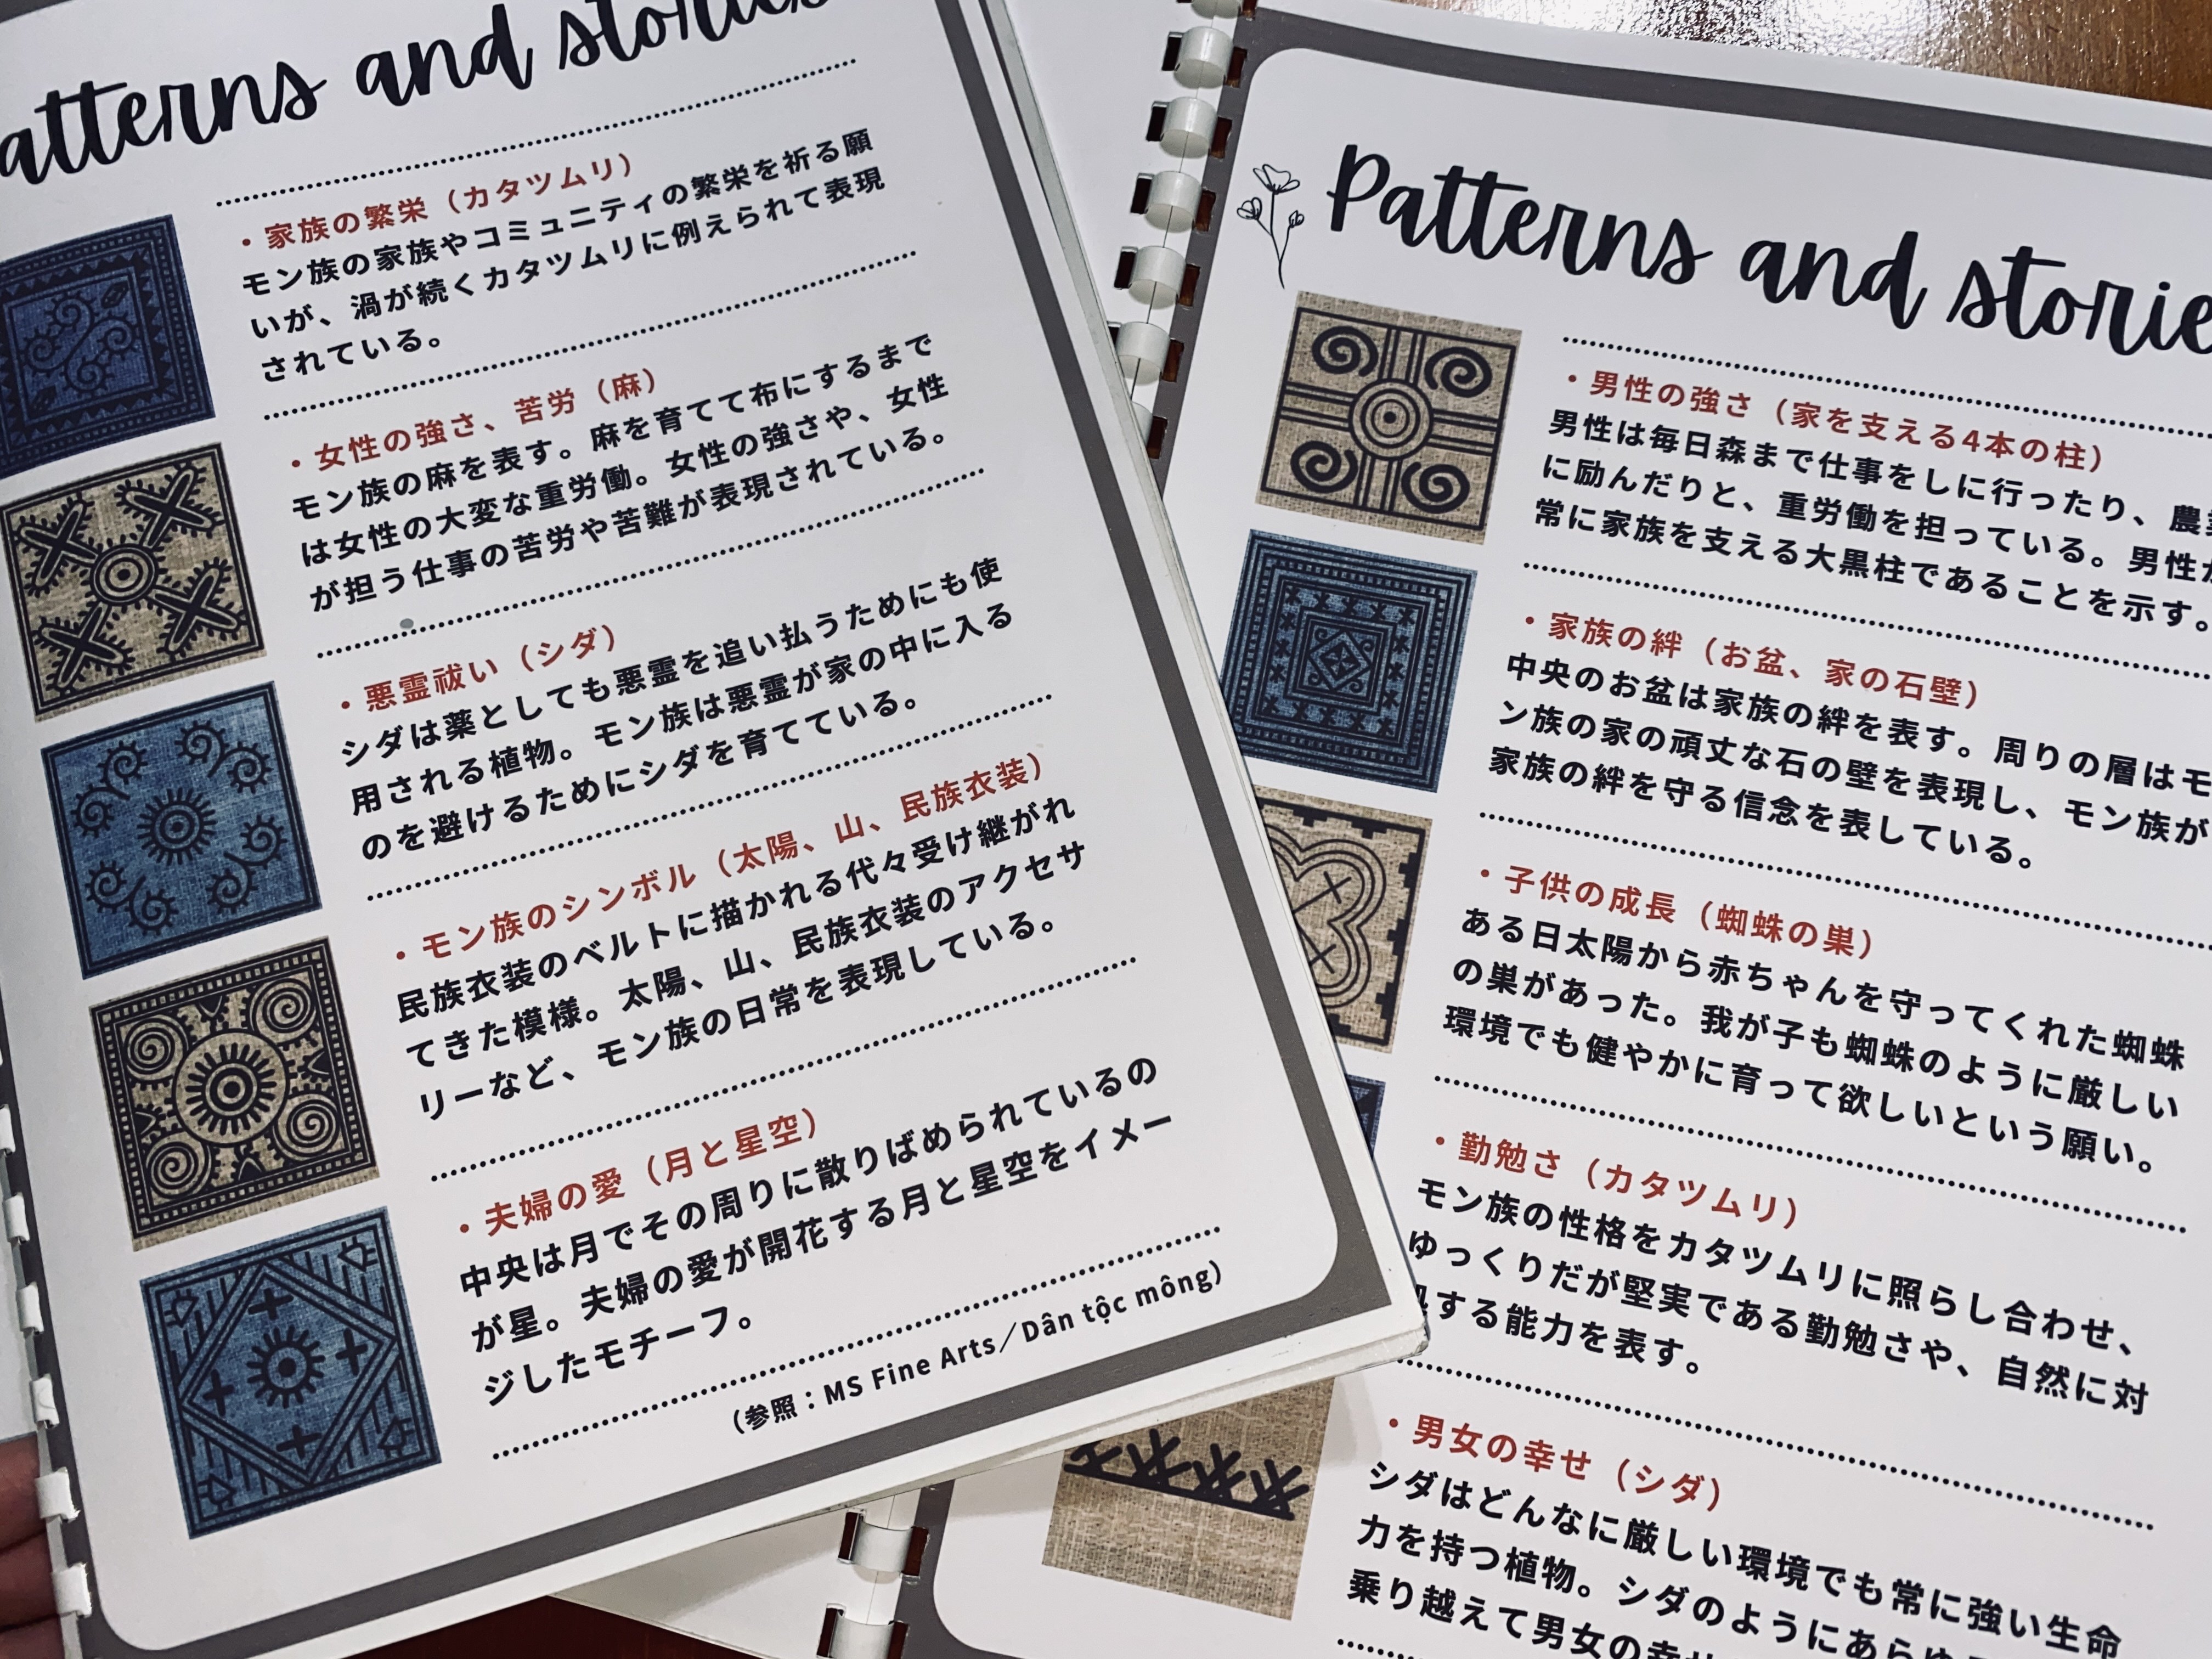 atterns and stories
・家族の繁栄（カタツムリ）
モン族の家族やコミュニティの繁栄を祈る願
いが、渦が続くカタツムリに例えられて表現
されている。
・女性の強さ、苦労（麻）
モン族の麻を表す。麻を育てて布にするまで
は女性の大変な重労働。女性の強さや、女性
が担う仕事の苦労や苦難が表現されている。
・悪霊祓い（シダ）
シダは薬としても悪霊を追い払うためにも使
用される植物。モン族は悪霊が家の中に入る
のを避けるためにシダを育てている。
・モン族のシンボル（太陽、山、民族衣装）
民族衣装のベルトに描かれる代々受け継がれ
てきた模様。太陽、山、民族衣装のアクセサ
リーなど、モン族の日常を表現している。
・夫婦の愛（月と星空）
中央は月でその周りに散りばめられているの
が星。夫婦の愛が開花する月と星空をイメー
ジしたモチーフ。
（参照：MS Fine Arts／Dân tộc mông）
Patterns and storie
・男性の強さ（家を支える4本の柱）
男性は毎日森まで仕事をしに行ったり、農
に励んだりと、重労働を担っている。男性
常に家族を支える大黒柱であることを示す。
・家族の絆（お盆、家の石壁）
中央のお盆は家族の絆を表す。周りの層はモ
ン族の家の頑丈な石の壁を表現し、モン族が
家族の絆を守る信念を表している。
・子供の成長（蜘蛛の巣）
ある日太陽から赤ちゃんを守ってくれた蜘蛛
の巣があった。我が子も蜘蛛のように厳しい
環境でも健やかに育って欲しいという願い。
・勤勉さ（カタツムリ）
モン族の性格をカタツムリに照らし合わせ、
ゆっくりだが堅実である勤勉さや、自然に対
する能力を表す。
・男女の幸せ（シダ）
シダはどんなに厳しい環境でも常に強い生命
力を持つ植物。シダのようにあらゆ
乗り越えて男女の幸せ